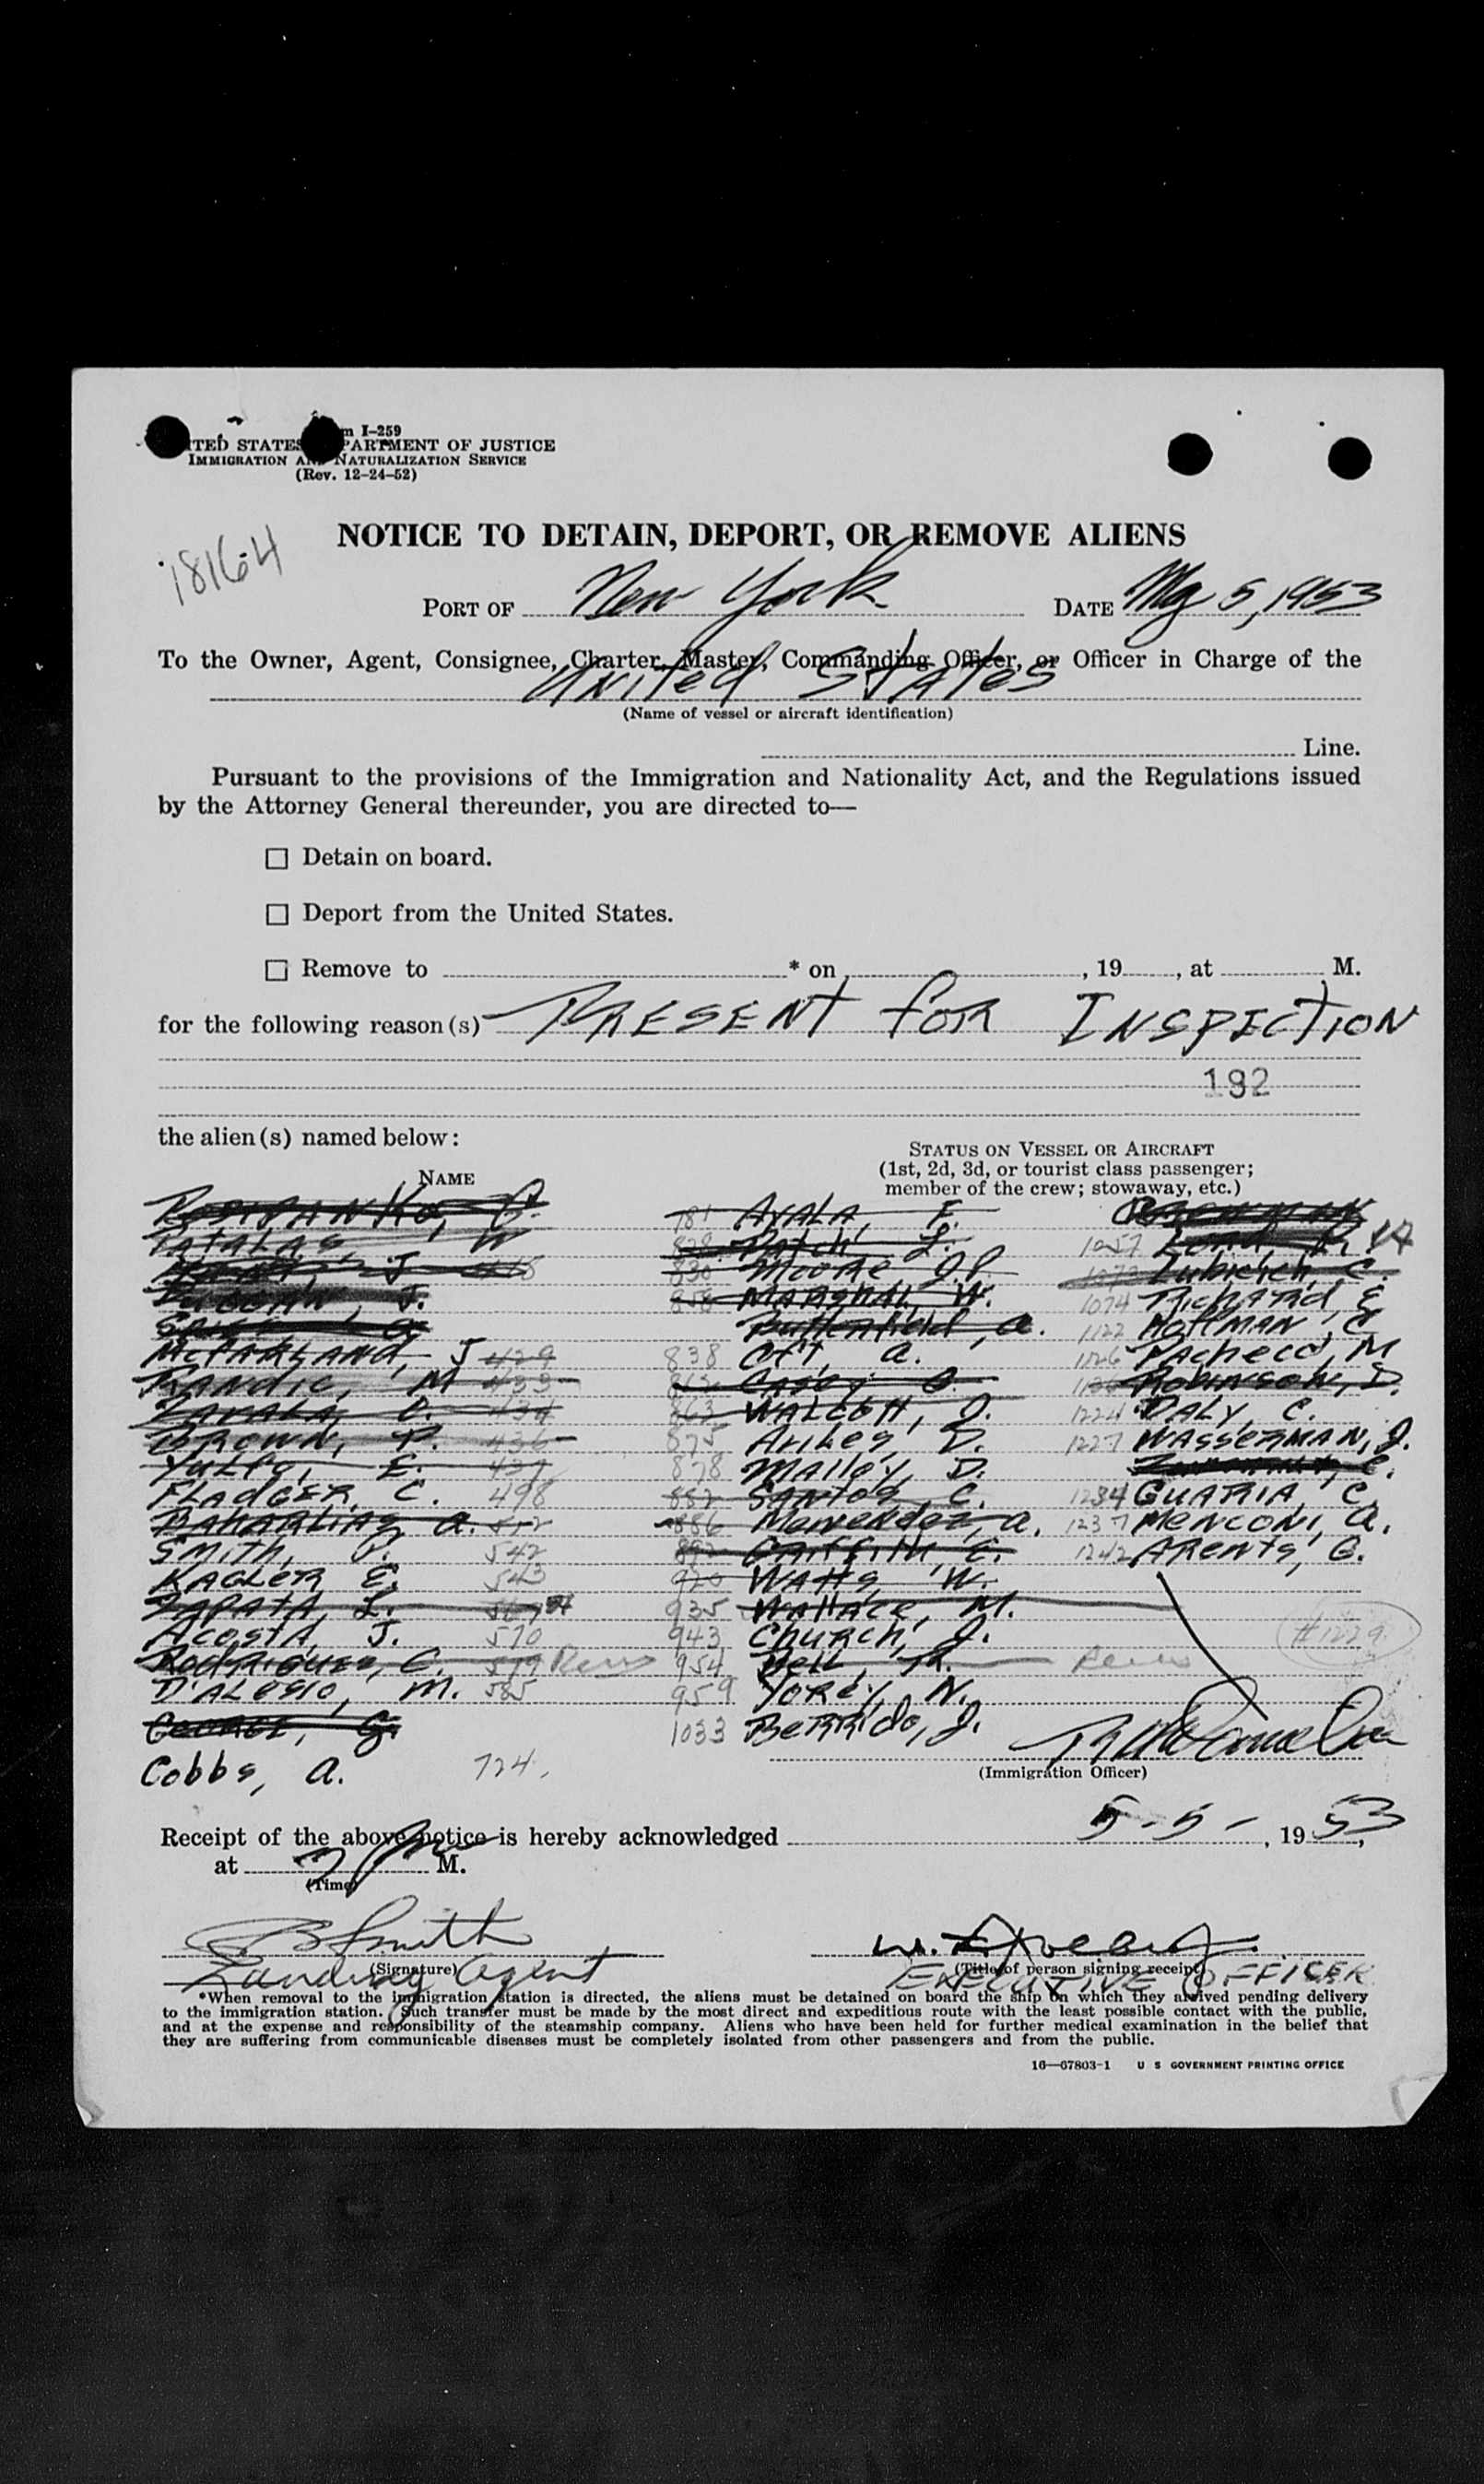 Form I-259
UNITED STATES DEPARTMENT OF JUSTICE
IMMIGRATION AND NATURALIZATION SERVICE
(Rev. 12-24-52)
NOTICE TO DETAIN, DEPORT, OR REMOVE ALIENS
18164
PORT OF New York DATE May 5, 1953
To the Owner, Agent, Consignee, Charter, Master, Commanding Officer, or Officer in Charge of the
United States
(Name of vessel or aircraft identification)
Line.
Pursuant to the provisions of the Immigration and Nationality Act, and the Regulations issued
by the Attorney General thereunder, you are directed to—
Detain on board.
Deport from the United States.
Remove to * on , 19 , at M.
for the following reason(s) PRESENT FOR INSPECTION
192
the alien(s) named below:
STATUS ON VESSEL OR AIRCRAFT
(1st, 2d, 3d, or tourist class passenger;
member of the crew; stowaway, etc.)
NAME
781 AYALA, F. BOWMAN
828 Patch L. 1057
J 830 MOORE J.P. Lubicich, C.
J. 858 MARSHAL, W. 1074 RICHARD, E
Butterfield, A. 1122 HOFFMAN, C
McPARLAND, J 429 838 Ott, A. 1126 Pacheco, M
RANDIC, M 433 Casey ROBINSON, D.
ZAVALA, O. 434 863 WALCOTT, J. 1224 DALY, C.
BROWN, P. 436 875 Aviles, D. 1227 WASSERMAN, J.
YULFO, E. 437 878 Malloy, D.
FLADGER, C. 498 882 SANTOS, C. 1234 GUARIA, C.
BAHARLIAS, A. 512 886 Menendez, A. 1237 MENCONI, A.
SMITH, P. 542 892 GRIFFITH, E. 1242 ARENTS, G.
KAGLER E. 543 920 WATTS, W.
ZAPATA, L. 567 935 WALLACE, M.
ACOSTA, J. 570 943 CHURCH, J. #1229
RODRIGUEZ, C. 579 954 Bell, R.
D'ALESIO, M. 585 959 TOREY, N.
GEORGE, G. 1033 BERRIDO, J.
Cobbs, A. 724.
(Immigration Officer)
Receipt of the above notice is hereby acknowledged 5-5-, 1953,
at M.
(Time)
B Smith
(Signature) (Title of person signing receipt)
Landing Agent EXECUTIVE OFFICER
*When removal to the immigration station is directed, the aliens must be detained on board the ship on which they arrived pending delivery
to the immigration station. Such transfer must be made by the most direct and expeditious route with the least possible contact with the public,
and at the expense and responsibility of the steamship company. Aliens who have been held for further medical examination in the belief that
they are suffering from communicable diseases must be completely isolated from other passengers and from the public.
16—67803-1 U S GOVERNMENT PRINTING OFFICE